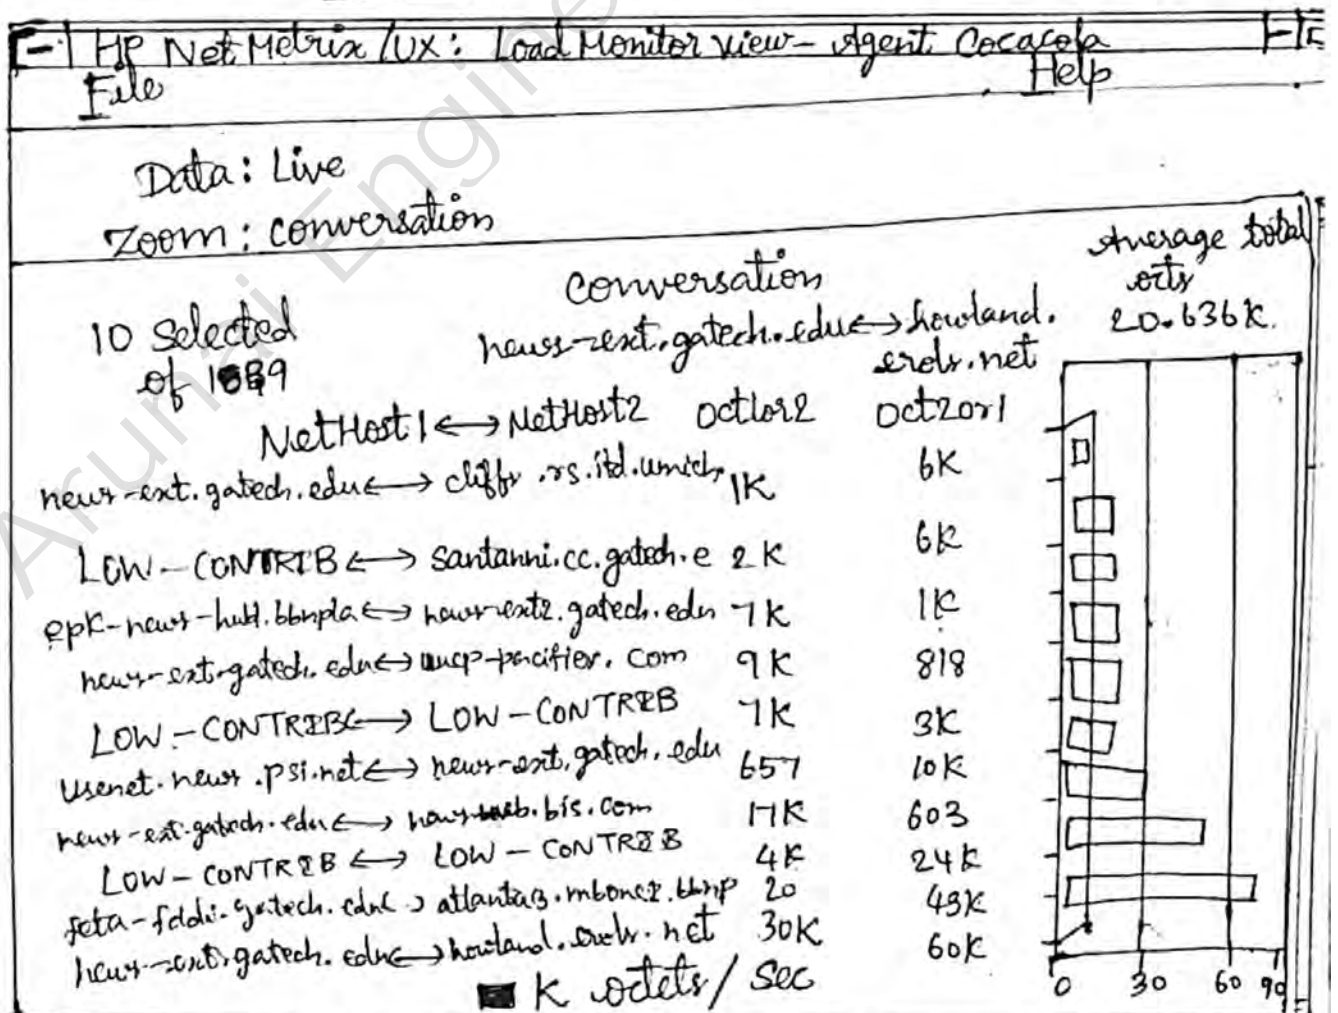 HP NetMetrix/UX: Load Monitor view - Agent Cocacola
File Help
Data: Live
Zoom: conversation
10 Selected of
Conversation
news-ext.gatech.edu ↔ howland.erols.net
Average total octs
20.636K.
NetHost1 ↔ NetHost2 Oct1or2 Oct2or1
news-ext.gatech.edu ↔ cliffr.rs.itd.umich. 1K 6K
LOW-CONTRIB ↔ santanni.cc.gatech.e 2K 6K
news-ext2.gatech.edu 7K 1K
news-ext.gatech.edu ↔ 9K 818
LOW-CONTRIB ↔ LOW-CONTRIB 7K 3K
usenet.news.psi.net ↔ news-ext.gatech.edu 657 10K
news-ext.gatech.edu ↔ 603
LOW-CONTRIB ↔ LOW-CONTRIB 4K 24K
20
news-ext.gatech.edu ↔ howland.erols.net 30K 60K
K octets/sec
0 30 60 90
Arunai Engine